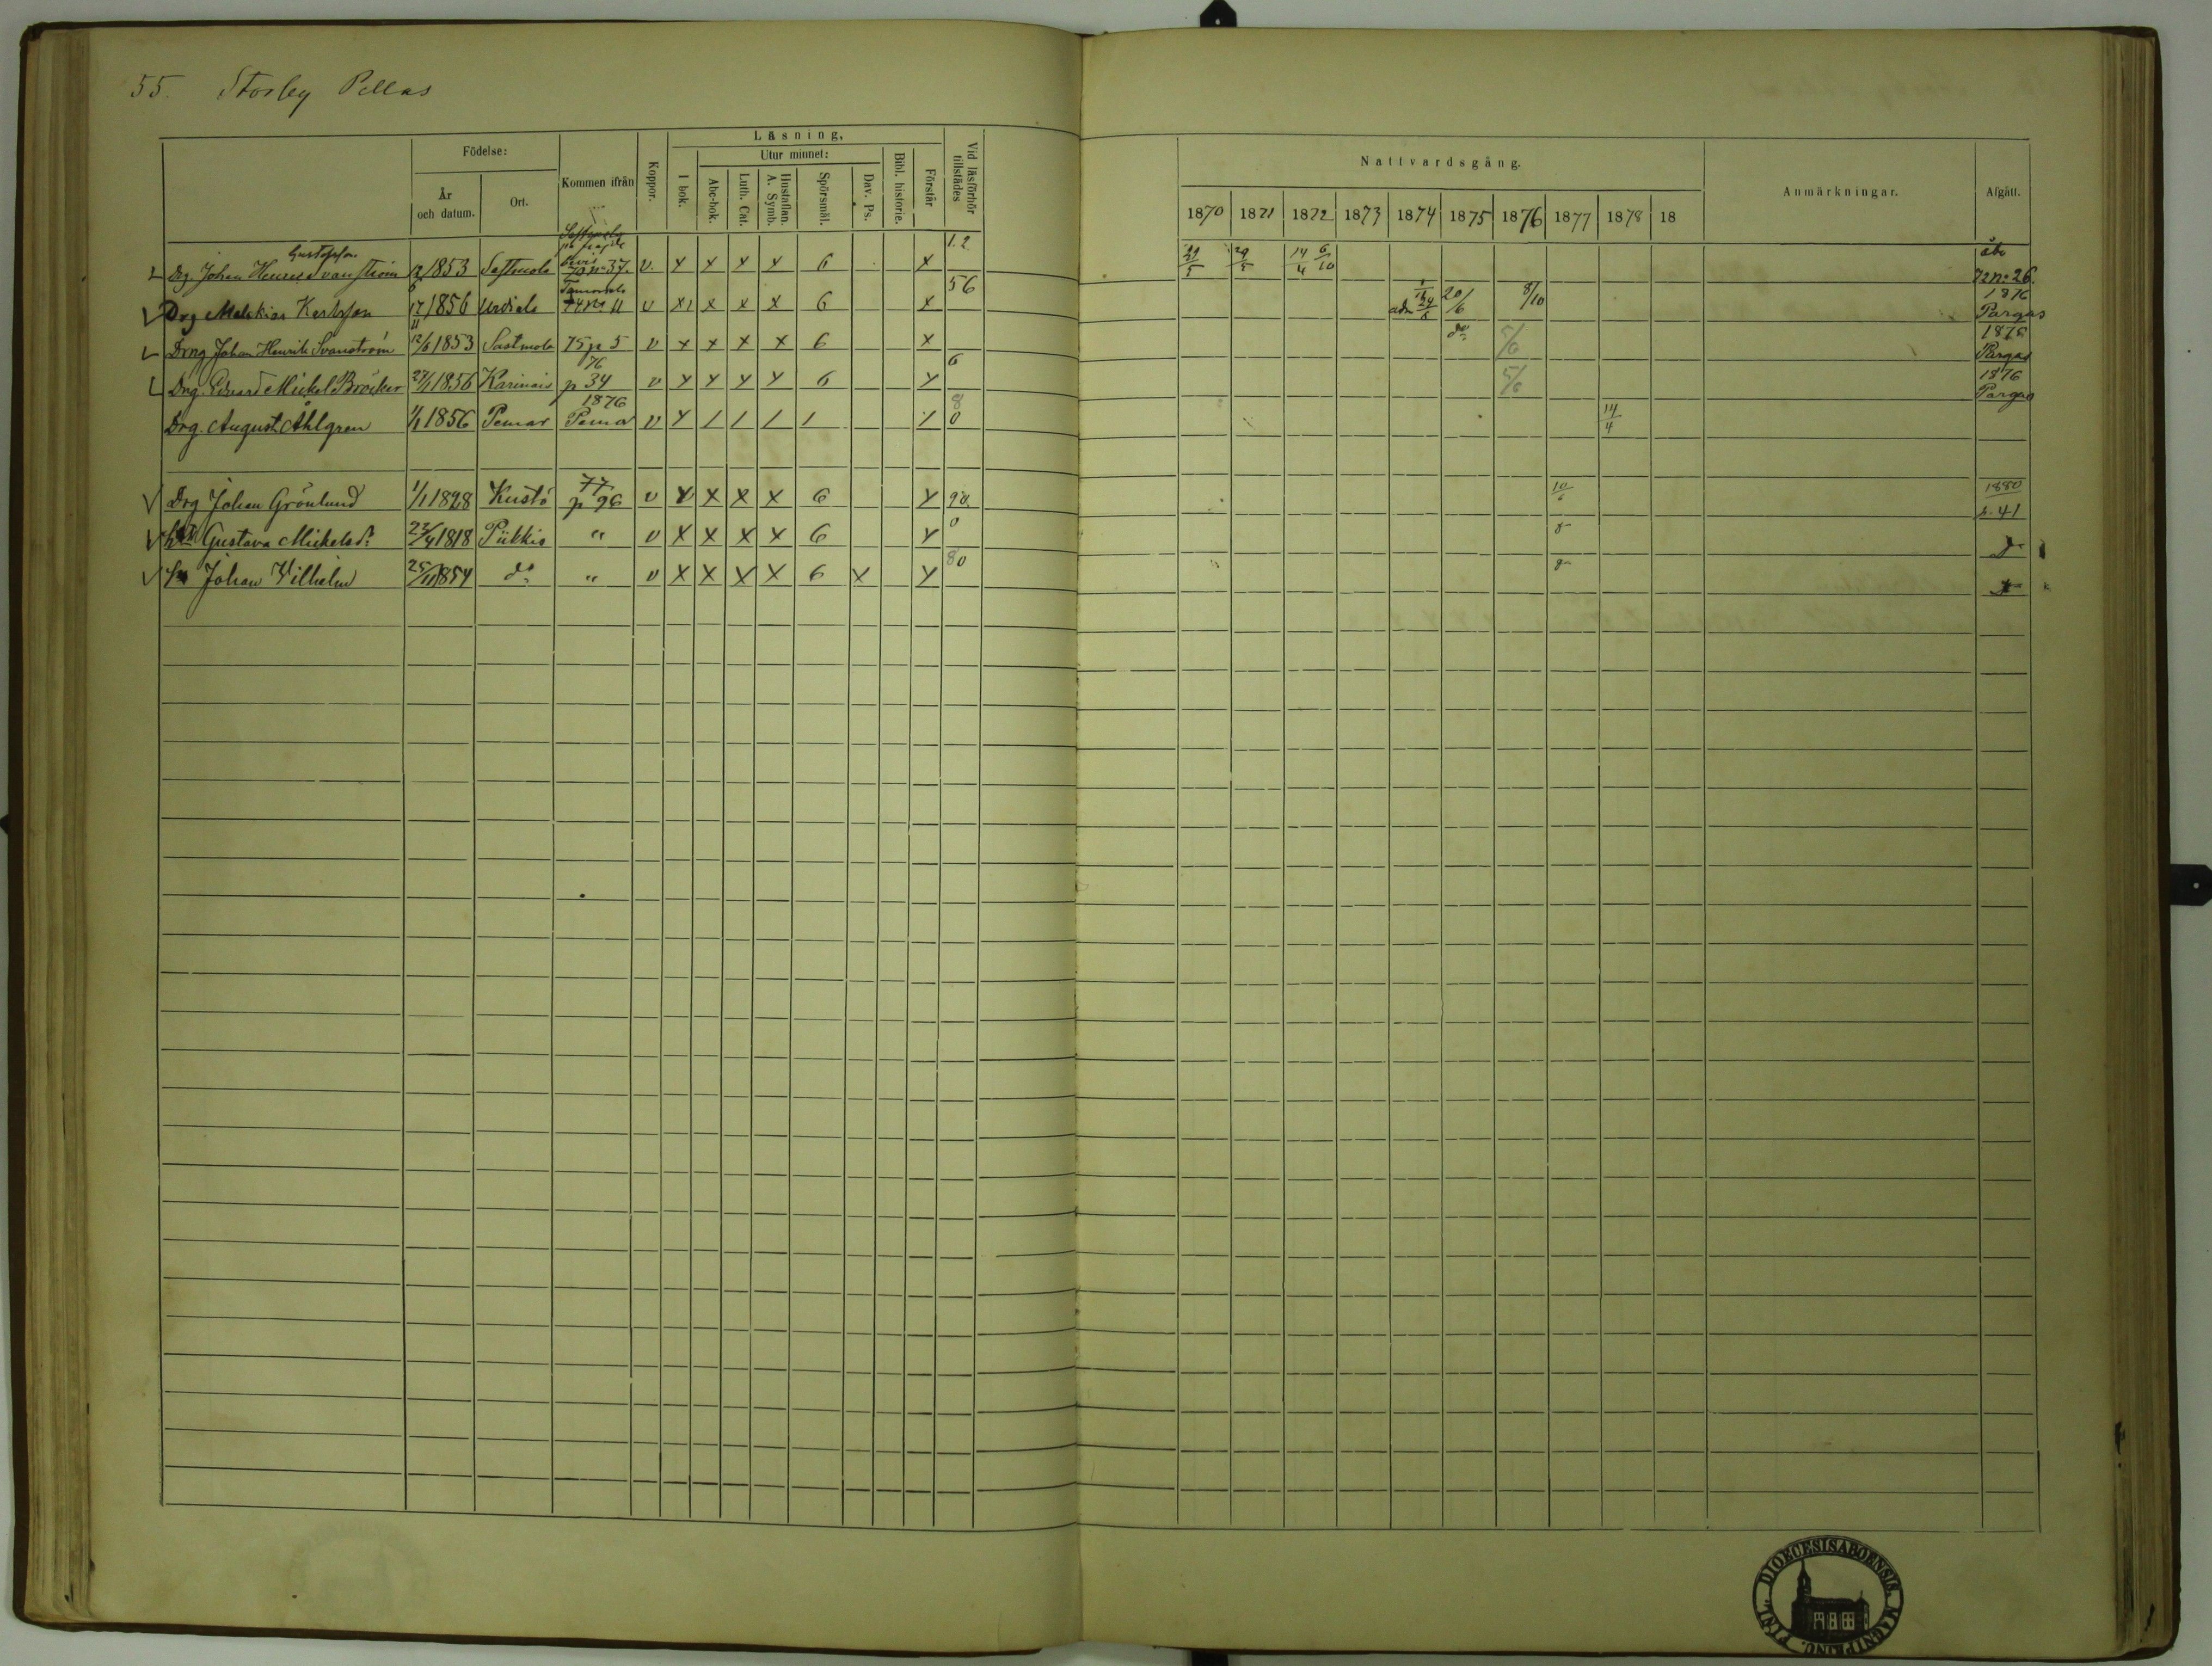 55. Storby Pellas
Födelse:
År och datum.
Ort.
Kommen ifrån
Koppor.
Läsning,
I bok.
Utur minnet:
Abc-bok.
Luth. Cat.
Hustaflan. A. Symb.
Spörsmål.
Dav. Ps.
Bibl. historie.
Förstår
Vid läsförhör tillstädes
Nattvardsgång.
1870 1871 1872 1873 1874 1875 1876 1877 1878 18
Anmärkningar.
Afgått.
Gustafsson
Drg Johan Henric Svanström 12/6 1853 Sastmola 70 no 37. v. x x x x 6 x 1.2 29/5 14/4 6/10 åbo 72 no 26.
Drg Malakias Karlsson 17/11 1856 Urdiala 74 no 11 v x x x x 6 x 56 20/6 8/10 1876 Pargas
Drng Johan Henrik Svanström 12/6 1853 Sastmola 75 p 5 v x x x x 6 x do 5/6 1876 Pargas
Drg. Edvard Mickel Bröcker 27/1 1856 Karinais 76 p 34 v x x x x 6 x 6 5/6 1876 Pargas
Drg. August Åhlgren 1/1 1856 Pemar 1876 Pemar v x / / / 1 / 8 0 14/4
Drg Johan Grönlund 1/1 1828 Kustö 77 p 96 v x x x x 6 x 90 10/6 1880 p. 41
Gustava Mickelsdr 22/4 1818 Piikkis " v x x x x 6 x 0 do
Sn Johan Wilhelm 25/11 1854 do " v x x x x 6 x x 80
DIOECESIS ABOENSIS. MAGNI PRINC. FINL.